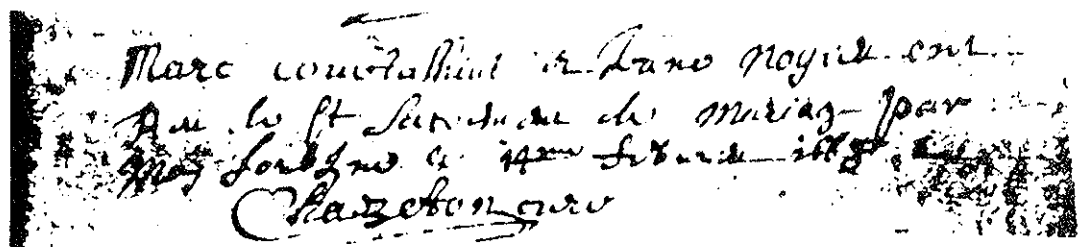 Marc et Jane noyer ont
Reu le St Sacrement de Mariag par
Moy soubsgne le 14me febvrie 1668
Chazeton curé